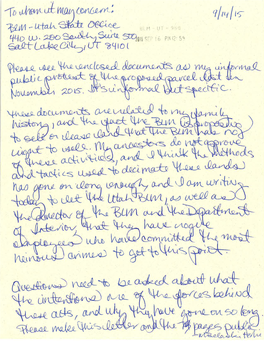 To whom it may concern: 9/14/15
BLM-Utah State Office
440 W. 200 South, Suite 500
Salt Lake City, UT 84101
Please see the enclosed documents as my informal
public protest of the proposed parcel list on
November 2015. It's informal but specific.
These documents are related to my family
history, and the fact the BLM is proposing
to sell or lease land that the BLM have no
right to sell. My ancestors do not approve
of these activities, and I think the methods
and tactics used to decimate these lands
has gone on long enough, and I am writing
today to let the Utah BLM, as well as
the director of the BLM and the Department
of Interior, that they have
employees who have committed the most
heinous crimes to get to this point.
Questions need to be asked about what
the intentions are of the forces behind
these acts, and why they have gone on so long.
Please make this letter and the pages public